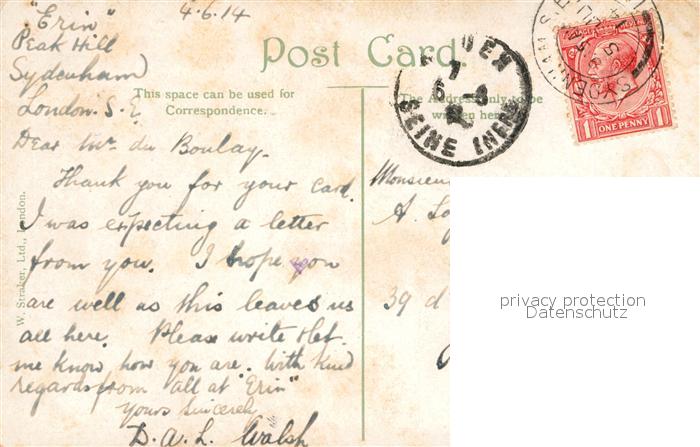 "Erin" 4.6.14
Peak Hill
Sydenham
London. S.E.
Post Card.
This space can be used for
Correspondence.
The Address only to be
written here.
Dear Mr. du Boulay.
Thank you for your card.
I was expecting a letter
from you. I hope you
are well as this leaves us
all here. Please write & let
me know how you are. With Kind
regards from all at "Erin"
Yours Sincerely
D. A. L. Walsh
W. Straker, Ltd., London.
Monsieur
A.
39 d
ROUEN
7
6 - 6
SEINE INFRE
SYDENHAM S.E.
1 ONE PENNY 1
privacy protection
Datenschutz